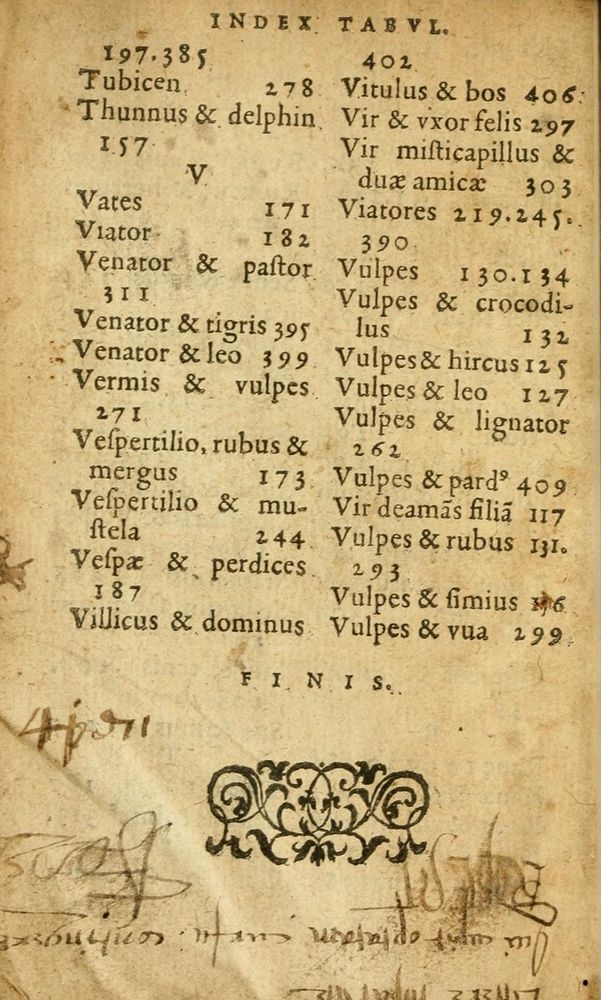 INDEX TABVL.
197.385
Tubicen 278
Thunnus & delphin
157
V
Vates 171
Viator 182
Venator & paſtor
311
Venator & tigris 395
Venator & leo 399
Vermis & vulpes
271
Veſpertilio, rubus &
mergus 173
Veſpertilio & mu-
ſtela 244
Veſpæ & perdices
187
Villicus & dominus
402
Vitulus & bos 406
Vir & vxor felis 297
Vir miſticapillus &
duæ amicæ 303
Viatores 219.245.
390
Vulpes 130.134
Vulpes & crocodi-
lus 132
Vulpes & hircus 125
Vulpes & leo 127
Vulpes & lignator
262
Vulpes & pardꝰ 409
Vir deamãs filiã 117
Vulpes & rubus 131.
293
Vulpes & ſimius
Vulpes & vua 299
FINIS.